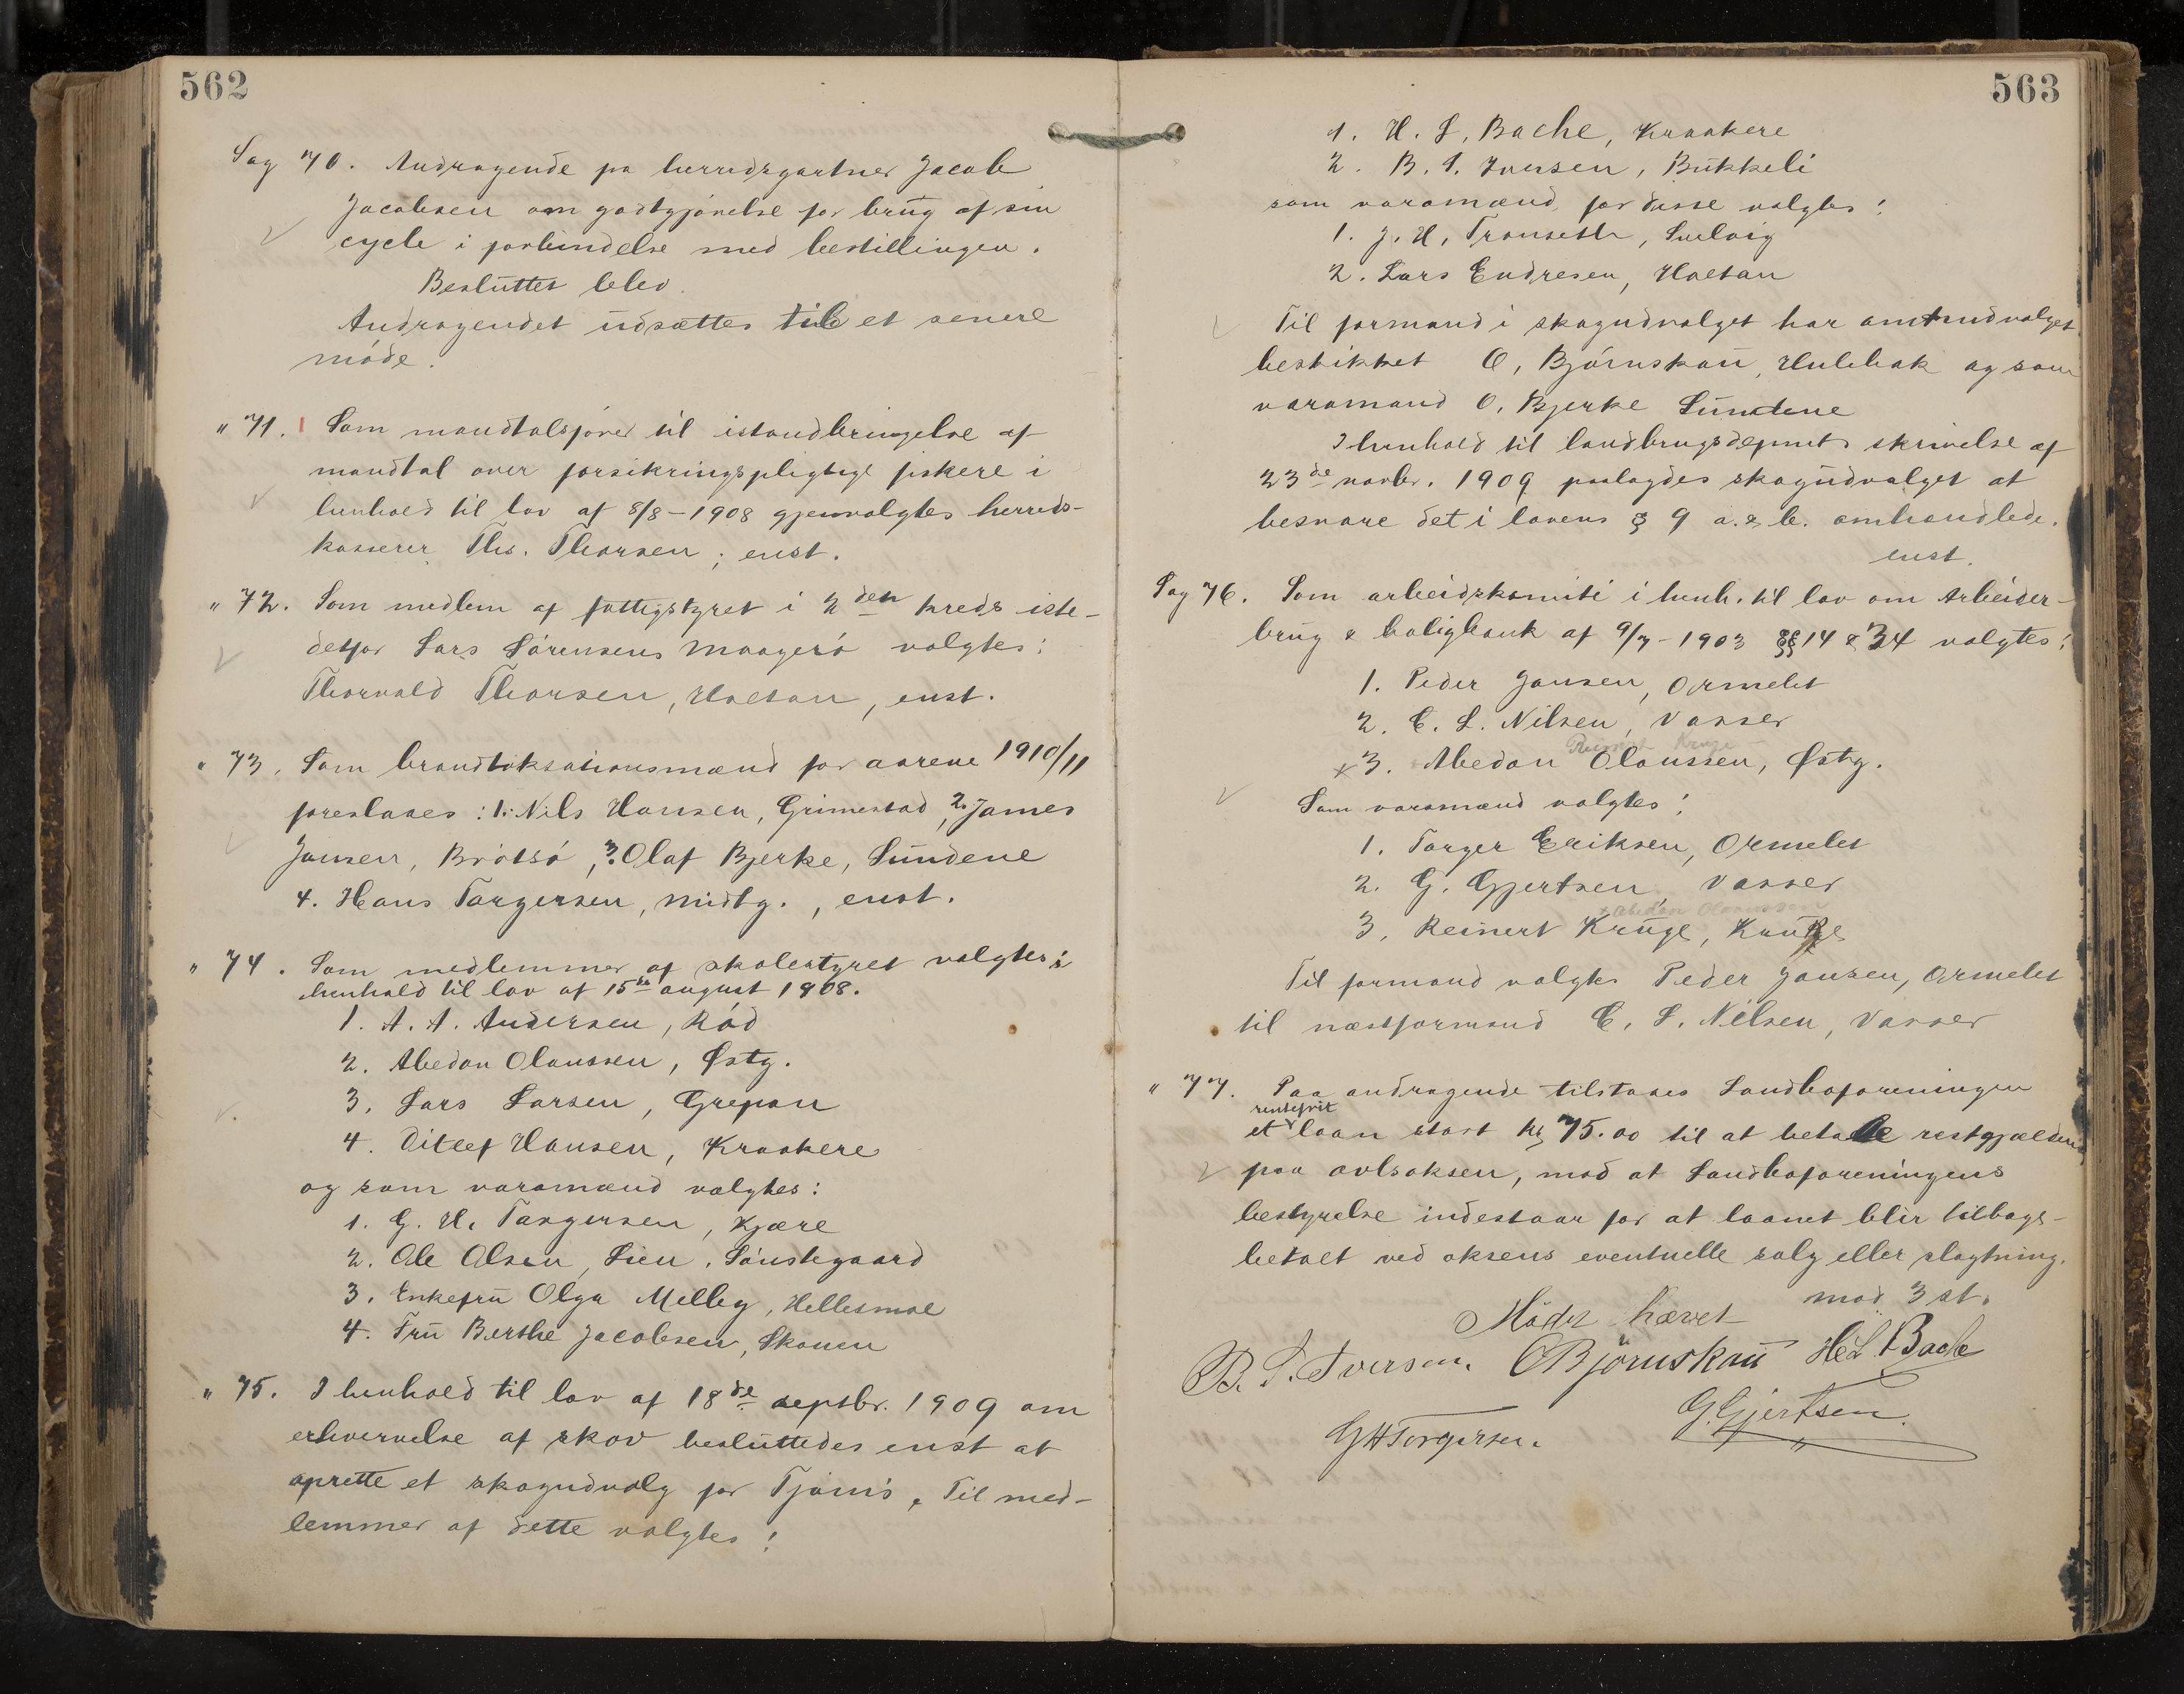 562
Sag 70. Andragende fra herredsgartner Jacob
Jacobsen om godtgjørelse for brug af sin
cycle i forbindelse med bestillingen.
Besluttet blev
Andragendet udsættes til et senere
møde.
" 71. Som mandtalsfører til istandbringelse af
mandtal over forsikringspligtige fiskere i
henhold til lov af 8/8-1908 gjenvalgtes herreds-
kasserer Ths. Thorsen; enst.
" 72. Som medlem af fattigstyret i 2den kreds iste-
detfor Lars Sørensens Maagerø valgtes:
Thorvald Thorsen, Holtan, enst.
" 73. Som brandtakstationsmænd for aarene 1910/11
foreslaaes: 1. Nils Hansen, Grimestad, 2. James
Jansen, Brøtsø, 3. Olaf Bjerke, Sundene
4. Hans Torgersen, Midtg., enst.
" 74. Som medlemmer af skolestyret valgtes i
henhold til lov af 15de august 1908.
1. A. A. Andersen, Rød
2. Abedon Olaussen, Østg.
3. Lars Larsen, Grepan
4. Ditlef Hansen, Kraakere
og som varamænd valgtes:
1. G. H. Torgersen, Kjære
2. Ole Olsen, Lien, Sønstegaard
3. Enkefru Olga Melleg, Hellesmoe
4. Fru Berthe Jacobsen, Skauen
" 75. I henhold til lov af 18de septbr. 1909 om
erhvervelse af skov besluttedes enst at
oprette et skogudvalg for Tjømø. Til med-
lemmer af dette valgtes:
563
1. H. L. Bache, Kraakere
2. B. S. Iversen, Bukkeli
som varamænd for disse valgtes:
1. J. H. Franseth, Solvig
2. Lars Endresen, Holtan
Til formand i skogudvalget har amtsudvalget
beskikket O. Bjørnskau, Hulebak og som
varamand O. Bjerke Sundene
I henhold til landbrugsdepmts skrivelse af
23de novbr. 1909 paalagdes skogudvalget at
besvare det i lovens § 9 a. & b. omhandlede.
enst.
Sag 76. Som arbeidskomite i henh. til lov om Arbeider-
brug & boligbank af 9/7-1903 §§ 14 & 34 valgtes:
1. Peder Jansen, Ormelet
2. C. L. Nilsen, Vasser
Reinert Kruge
x 3. Abedon Olaussen, Østg.
Som varamænd valgtes:
1. Torger Eriksen, Ormelet
2. G. Gjertsen, Vasser
x Abedon Olaussen
3. Reinert Kruge, Kruge
Til formand valgtes Peder Jansen, Ormelet
til næstformand C. L. Nilsen, Vasser
" 77. Paa andragende tilstaaes Landboforeningen
rentefrit
et laan stort kr 75.00 til at betale restgjælden
paa avlsoksen, mod at Landboforeningens
bestyrelse indestaar for at laanet blir tilbage-
betalt ved oksens eventuelle salg eller slagtning.
mod 3 st.
Mødet hævet
B. S. Iversen. OBjørnskau H L Bache
GHTorgersen. G. Gjertsen.